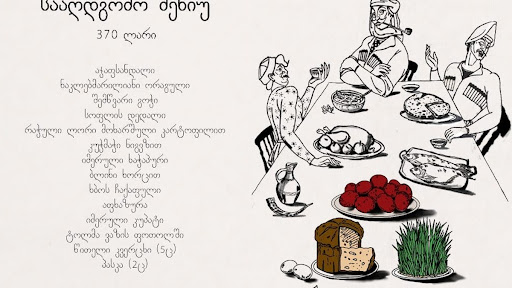 სააღდგომო მენიუ
370 ლარი
აჯაფსანდალი
ნაკლებმარილიანი ორაგული
შემწვარი გოჭი
სოფლის დედალი
რაჭული ლორი მოხარშული კარტოფილით
კუჭმაჭი ნიგვზით
იმერული ხაჭაპური
ბლინი ხორცით
ხბოს ჩაქაფული
აფხაზურა
იმერული კუპატი
ტოლმა ვაზის ფოთოლში
წითელი კვერცხი (5ც)
პასკა (2ც)